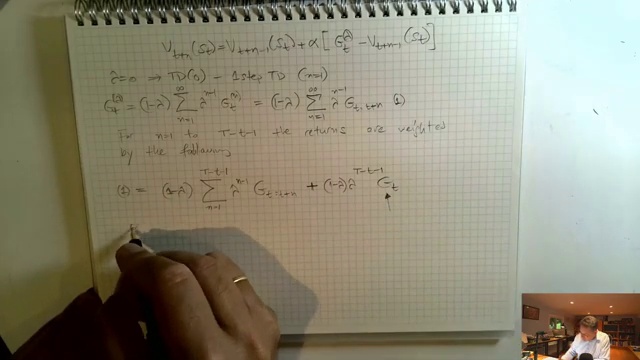 V_{t+n}(S_t) = V_{t+n-1}(S_t) + α [ G_t^λ − V_{t+n-1}(S_t) ]
λ=0 ⇒ TD(0) − 1 step TD (n=1)
G_t^{(λ)} = (1-λ) ∑_{n=1}^{∞} λ^{n-1} G_t^{(n)} = (1-λ) ∑_{n=1}^{∞} λ^{n-1} G_{t:t+n} (1)
For n=1 to T-t-1 the returns are weighted
by the following
(1) = (1-λ) ∑_{n=1}^{T-t-1} λ^{n-1} G_{t:t+n} + (1-λ) λ^{T-t-1} G_t